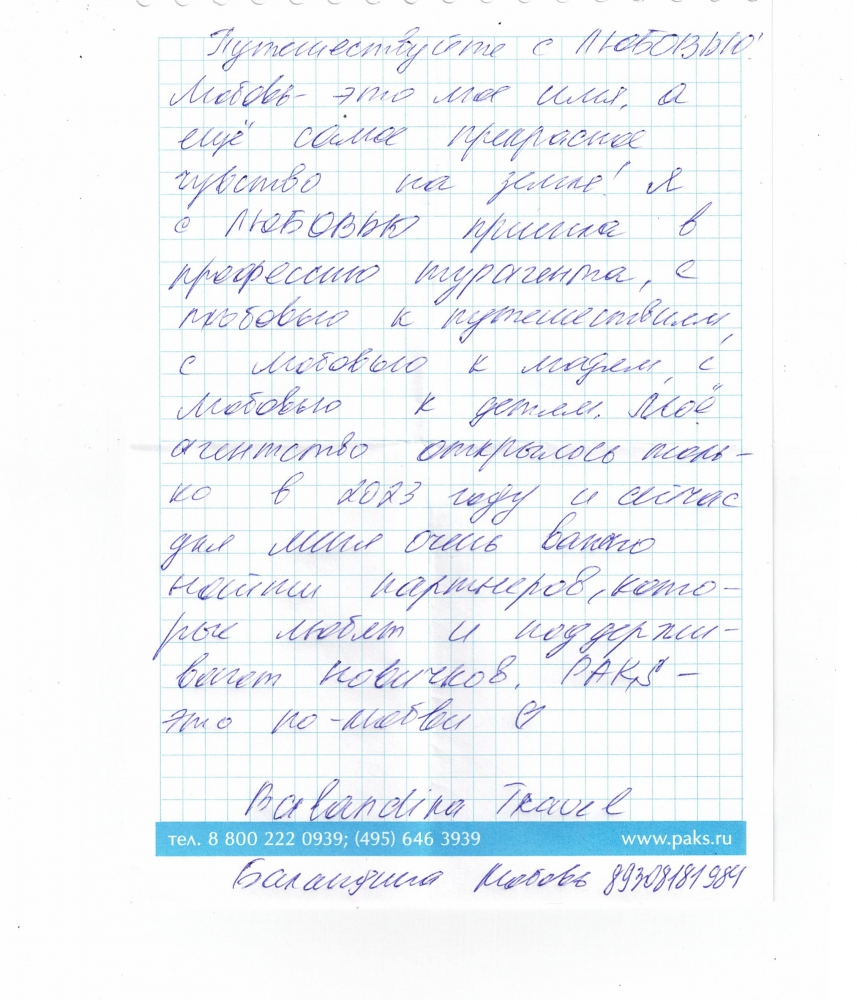 Путешествуйте с ЛЮБОВЬЮ!
Любовь- это мое имя, а
ещё самое прекрасное
чувство на земле! Я
с ЛЮБОВЬЮ пришла в
профессию турагента, с
любовью к путешествиям,
с любовью к людям, с
любовью к детям. Моё
агентство открылось толь-
ко в 2023 году и сейчас
для меня очень важно
найти партнеров, кото-
рые любят и поддержи-
вают новичков. PAKS -
это по-любви ♡
Balandina Travel
тел. 8 800 222 0939; (495) 646 3939
www.paks.ru
Баландина Любовь 89308181984